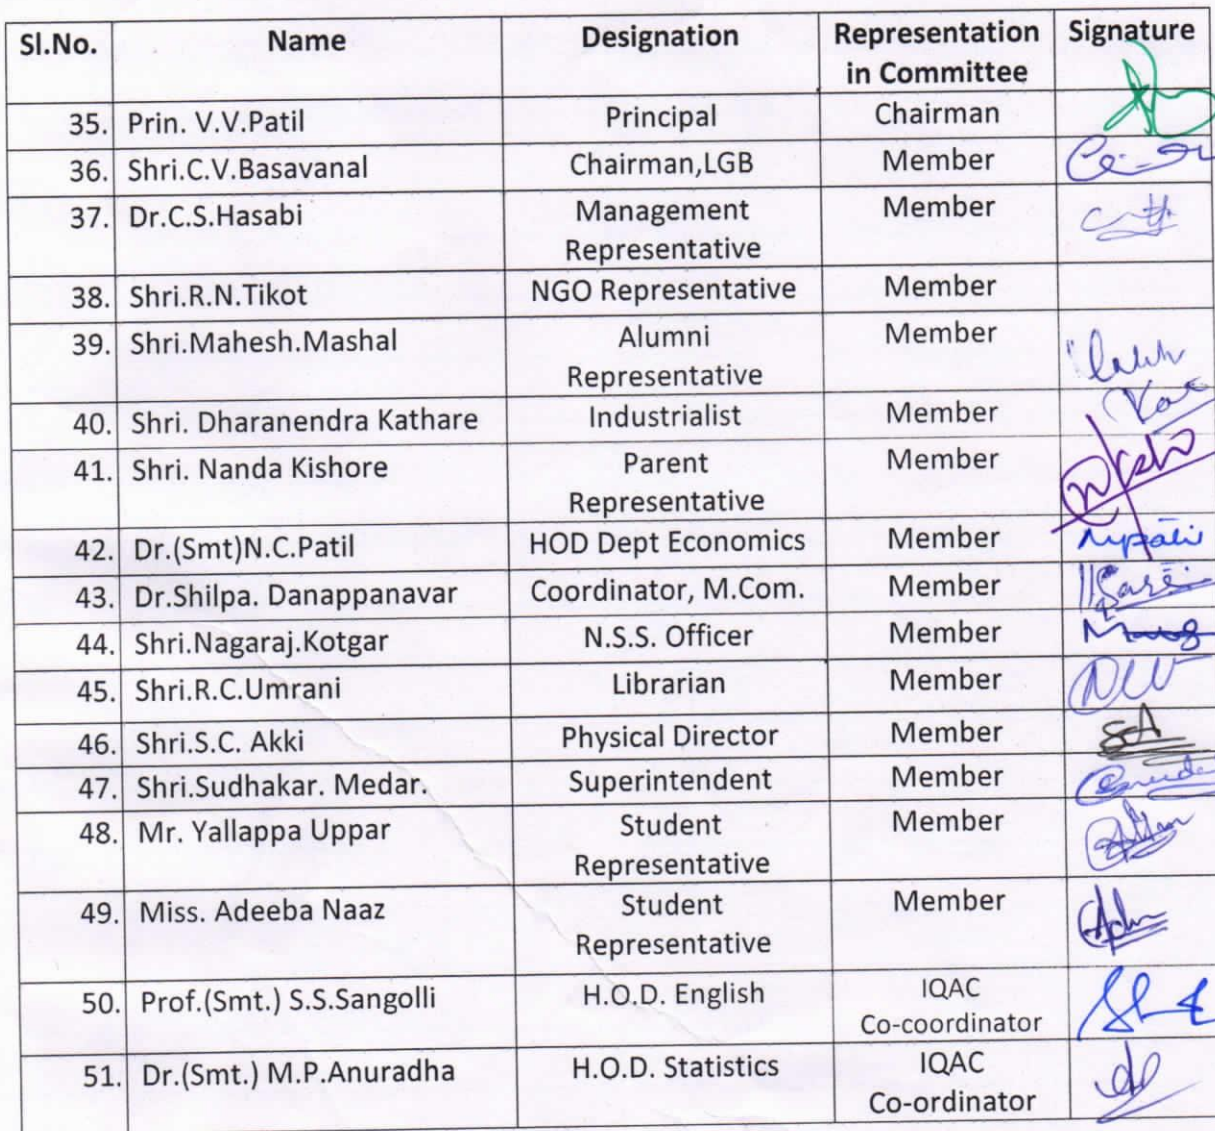 Sl.No. Name Designation Representation Signature
in Committee
35. Prin. V.V.Patil Principal Chairman
36. Shri.C.V.Basavanal Chairman,LGB Member
37. Dr.C.S.Hasabi Management Member
Representative
38. Shri.R.N.Tikot NGO Representative Member
39. Shri.Mahesh.Mashal Alumni Member
Representative
40. Shri. Dharanendra Kathare Industrialist Member
41. Shri. Nanda Kishore Parent Member
Representative
42. Dr.(Smt)N.C.Patil HOD Dept Economics Member
43. Dr.Shilpa. Danappanavar Coordinator, M.Com. Member
44. Shri.Nagaraj.Kotgar N.S.S. Officer Member
45. Shri.R.C.Umrani Librarian Member
46. Shri.S.C. Akki Physical Director Member
47. Shri.Sudhakar. Medar. Superintendent Member
48. Mr. Yallappa Uppar Student Member
Representative
49. Miss. Adeeba Naaz Student Member
Representative
50. Prof.(Smt.) S.S.Sangolli H.O.D. English IQAC
Co-coordinator
51. Dr.(Smt.) M.P.Anuradha H.O.D. Statistics IQAC
Co-ordinator